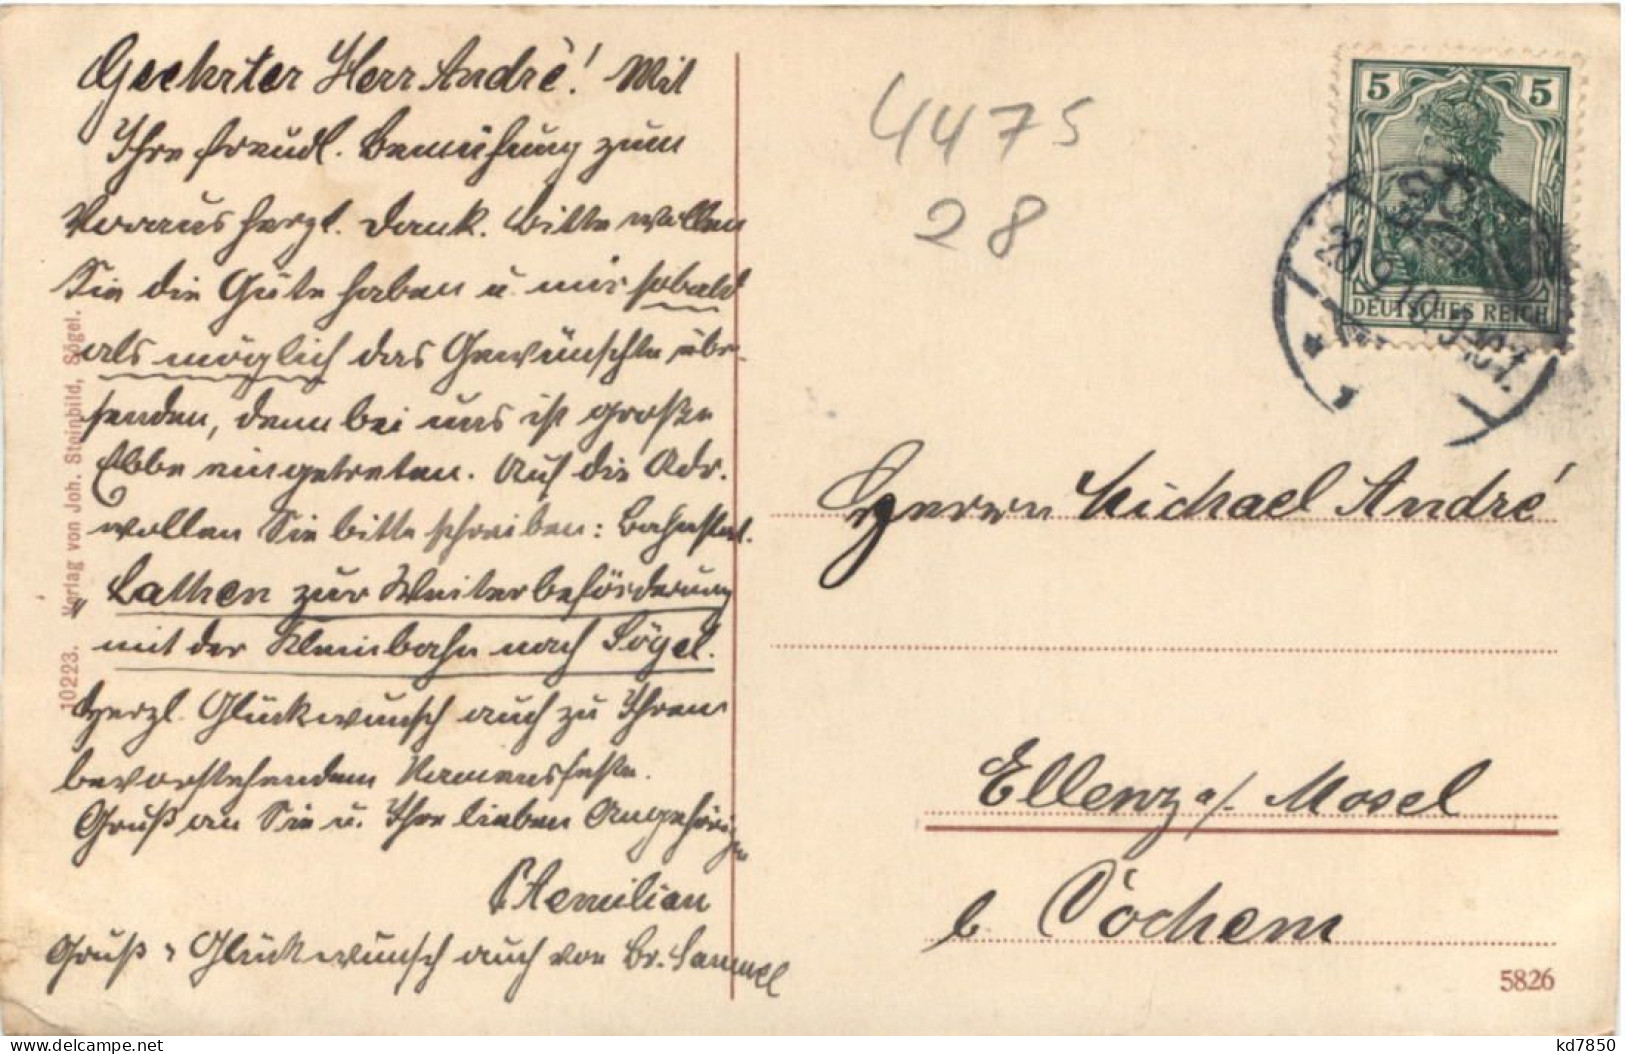 Geehrter Herr André! Mit
Ihre freudl. Bemühung zum
Voraus herzl. Dank. Bitte wollen
Sie die Güte haben u. mir sobald
als möglich das Gewünschte über-
senden, denn bei uns ist große
Ebbe eingetreten. Auf die Adr.
wollen Sie bitte schreiben: Bahnstat.
"Lathen zur Weiterbeförderung
mit der Kleinbahn nach Sögel.
Herzl. Glückwunsch auch zu Ihrem
bevorstehenden Namensfeste.
Gruß an Sie u. Ihre lieben Angehörigen
P. Aemilian
Gruß u. Glückwunsch auch von Br. Samuel
10223. Verlag von Joh. Steinbild, Sögel.
4475
28
5 5
DEUTSCHES REICH
20.9.10.
Herrn Michael André
Ellenz a/. Mosel
b. Cochem
5826
kd7850